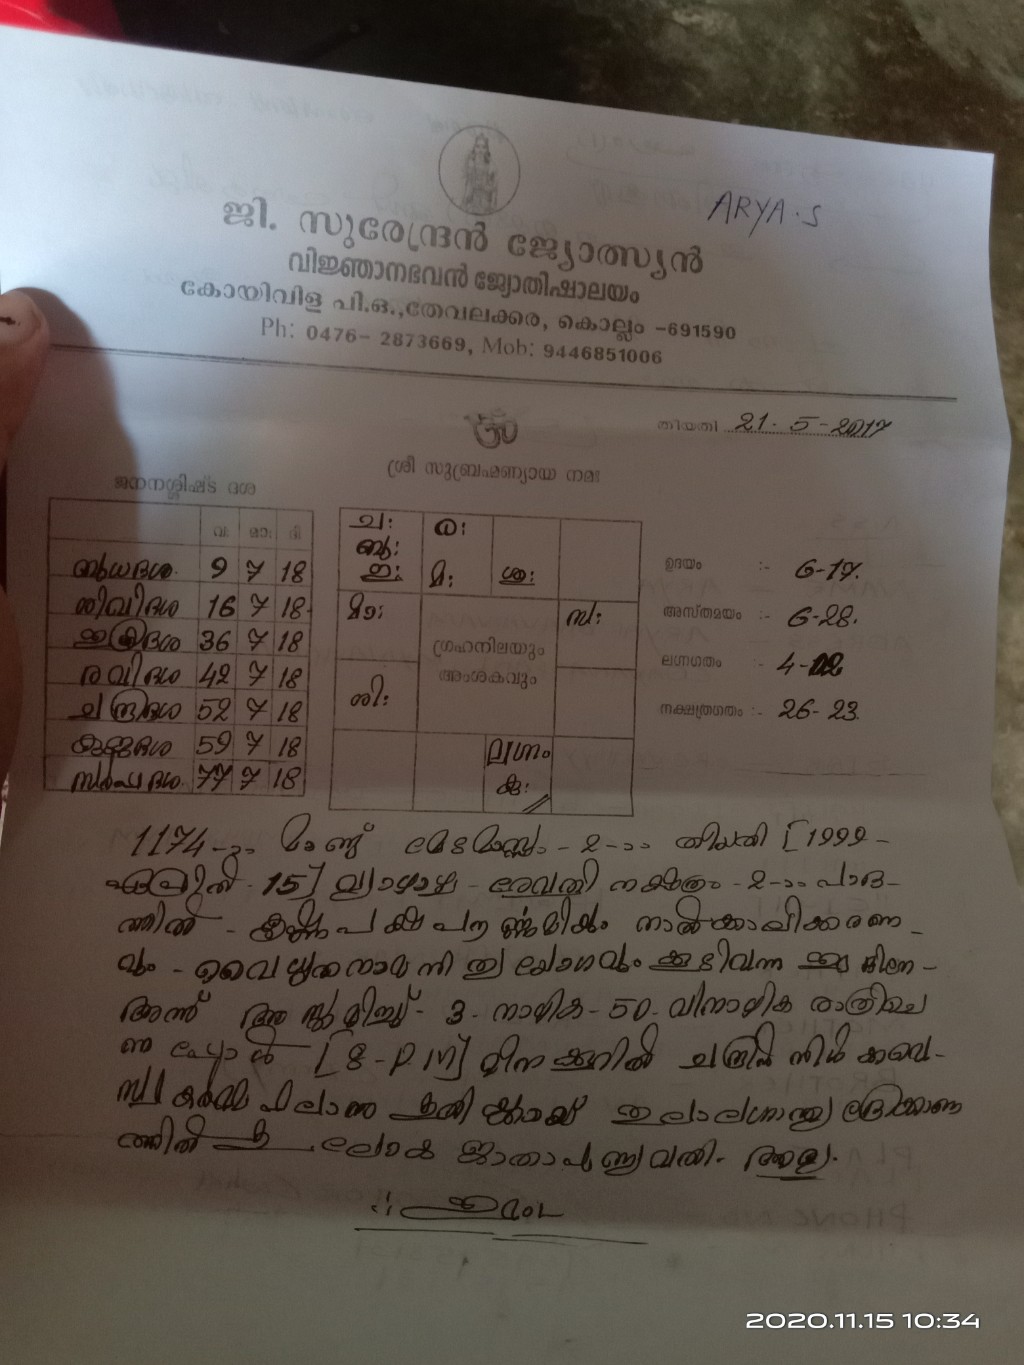 ARYA.S
ജി. സുരേന്ദ്രൻ ജ്യോത്സ്യൻ
വിജ്ഞാനഭവൻ ജ്യോതിഷാലയം
കോയിവിള പി.ഒ.,തേവലക്കര, കൊല്ലം -691590
Ph: 0476- 2873669, Mob: 9446851006
തിയതി 21-5-2017
ശ്രീ സുബ്രഹ്മണ്യായ നമഃ
ജനനശ്ശിഷ്ട ദശ
വ: മാ: ദി
ബുധദശ 9 7 18
ശിഖിദശ 16 7 18
36 7 18
രവിദശ 42 7 18
ചന്ദ്രദശ 52 7 18
കുജദശ 59 7 18
സർപ്പദശ 77 7 18
ച: ര:
ബു:
ഗു: മ: ശു:
മാ: സ:
ഗ്രഹനിലയും
അംശകവും
ശി:
ലഗ്നം
കു:
ഉദയം :- 6-17
അസ്തമയം :- 6-28
ലഗ്നഗതം :- 4-02
നക്ഷത്രഗതം :- 26-23
1174-ാം മാണ്ട് മേടമാസം-2-ാം തിയതി [1999-
ഏപ്രിൽ-15] വ്യാഴാഴ്ച-രേവതി നക്ഷത്രം-2-ാം പാദ-
ത്തിൽ-കൃഷ്ണപക്ഷ നാൽക്കാലിക്കരണ-
വും-വൈധൃതനാമ നിത്യയോഗവും കൂടിവന്ന
അന്ന് അസ്തമിച്ച്-3-നാഴിക-50-വിനാഴിക രാത്രിചെ
ന്നപ്പോൾ [8-P.M] മീനക്കൂറിൽ
തുലാലഗ്നത്തിൽ ദ്രേക്കാണ
ത്തിൽ ലോക ജാതാപുണ്യവതി-ആര്യ.
ശുഭം
2020.11.15 10:34